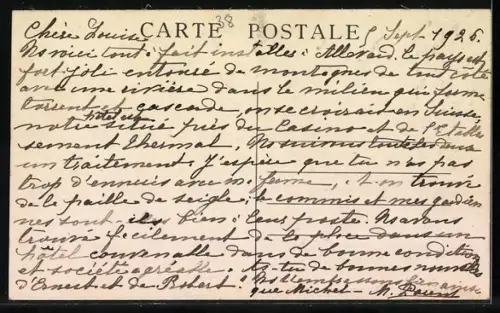 CARTE POSTALE
38
Chère Louise
5 Sept 1926.
Nous voici tout à fait installés à Allevard, le pays est
fort joli entouré de montagnes de tout côté
avec une rivière dans le milieu qui forme
torrent et cascade, on se croirait en Suisse,
notre hôtel est situé près du Casino et de l'Etablis
sement thermal. Nous suivons toutes deux
un traitement. J'espère que tu n'as pas
trop d'ennuis avec m. ferme, a-t-on trouvé
de la paille de seigle, le commis et mes gardien
nes sont-ils bien à leur poste. Nous avons
trouvé facilement de la place dans un
hôtel convenable dans de bonne condition
et société agréable. As-tu de bonnes nouvelles
d'Ernest et de Robert?
que Michel